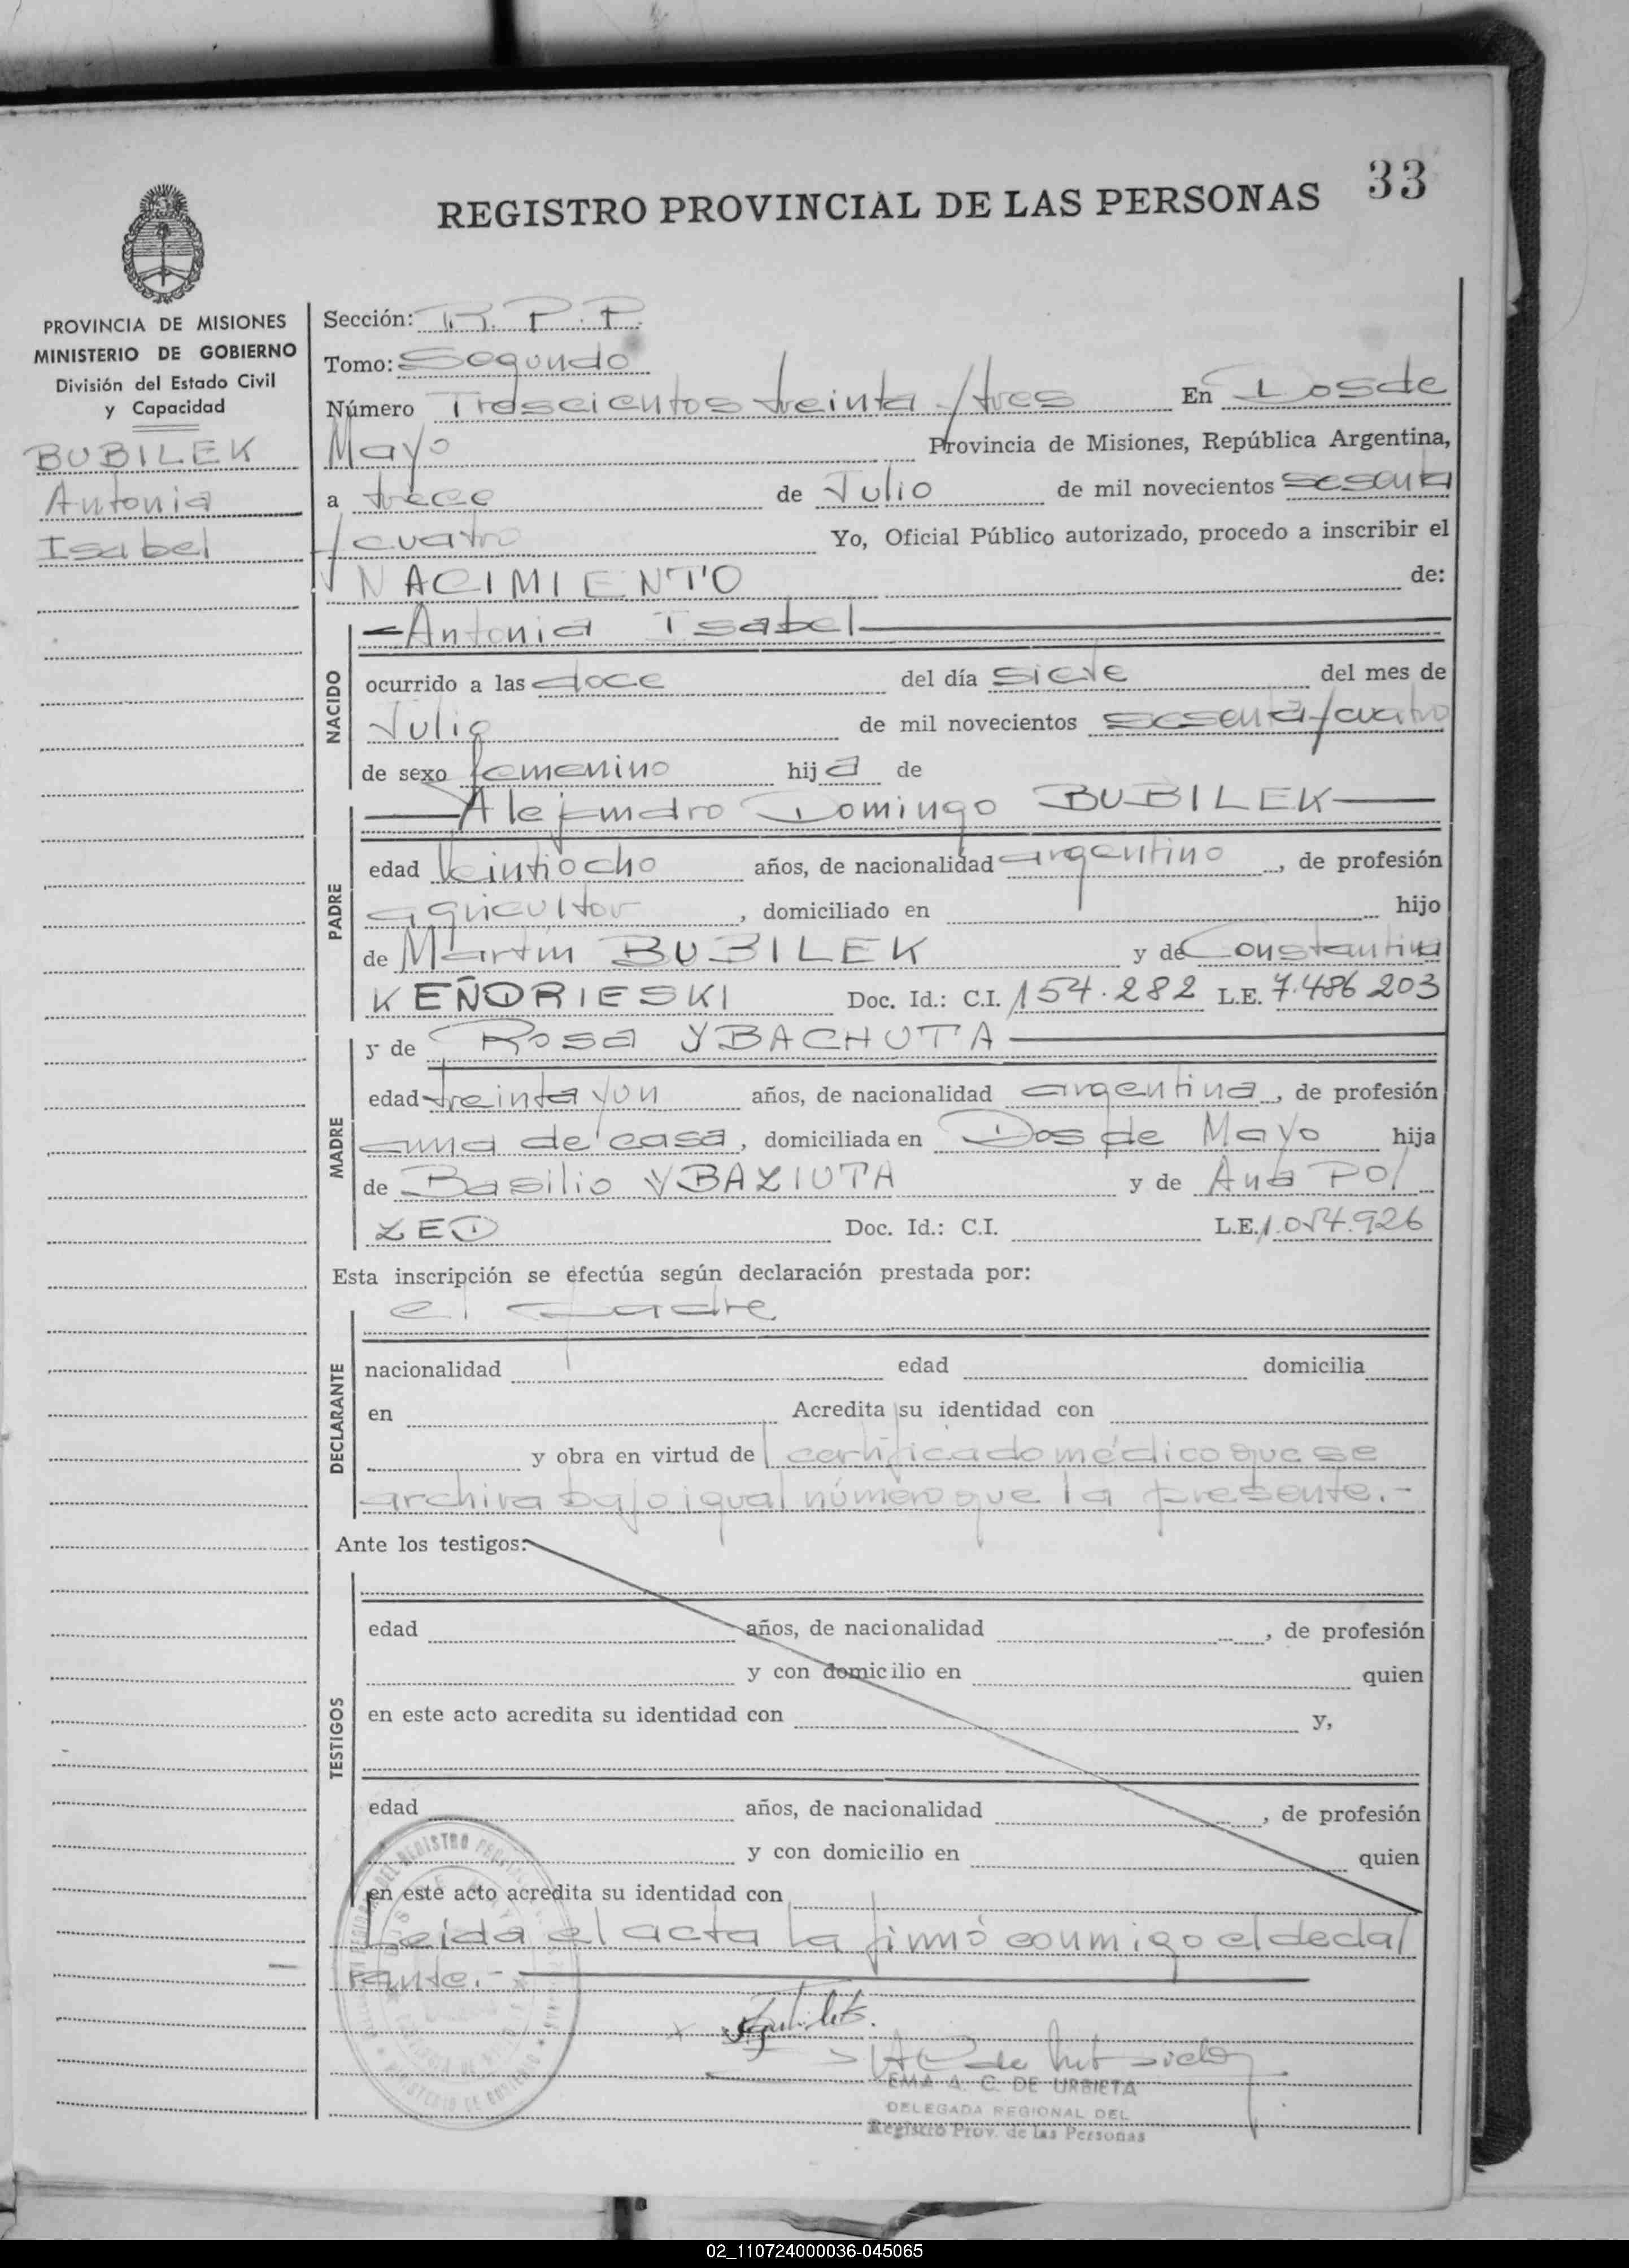 33
REGISTRO PROVINCIAL DE LAS PERSONAS
PROVINCIA DE MISIONES
MINISTERIO DE GOBIERNO
División del Estado Civil
y Capacidad
BUBILEK
Antonia
Isabel
Sección: R. P. P.
Tomo: Segundo
Número Trescientos treinta y tres En Dos de
Mayo Provincia de Misiones, República Argentina,
a trece de Julio de mil novecientos sesenta
y cuatro Yo, Oficial Público autorizado, procedo a inscribir el
NACIMIENTO de:
NACIDO
Antonia Isabel
ocurrido a las doce del día siete del mes de
Julio de mil novecientos sesenta y cuatro
de sexo femenino hija de
PADRE
Alejandro Domingo BUBILEK
edad Veintiocho años, de nacionalidad argentino, de profesión
agricultor, domiciliado en hijo
de Martín BUBILEK y de Constantina
KEÑDRIESKI Doc. Id.: C.I. 154.282 L.E. 7.486 203
MADRE
y de Rosa YBACHUTA
edad treinta y un años, de nacionalidad argentina, de profesión
ama de casa, domiciliada en Dos de Mayo hija
de Basilio YBAZIUTA y de Ana POL
ZED Doc. Id.: C.I. L.E. 1.054.926
Esta inscripción se efectúa según declaración prestada por:
DECLARANTE
el padre
nacionalidad edad domicilia
en Acredita su identidad con
y obra en virtud de certificado médico que se
archiva bajo igual número que la presente.-
Ante los testigos:
TESTIGOS
edad años, de nacionalidad , de profesión
y con domicilio en quien
en este acto acredita su identidad con y,
edad años, de nacionalidad , de profesión
y con domicilio en quien
en este acto acredita su identidad con
Leída el acta la firmó conmigo el decla
rante.-
EMA A. C. DE URBIETA
DELEGADA REGIONAL DEL
Registro Prov. de las Personas
02_110724000036-045065